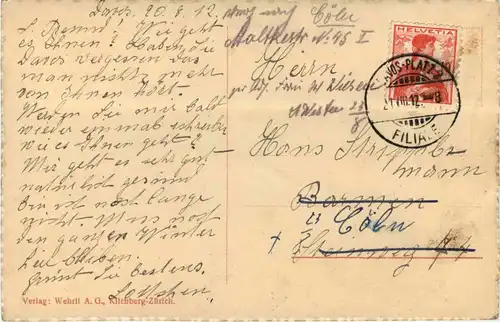 Davos, 20. 8. 12.
L. Benno! Wie geht
es Ihnen? Haben Sie
Davos vergessen das
man nichts mehr
von Ihnen hört.
Werden Sie mir bald
wieder einmal schreiben
wie es Ihnen geht?
Mir geht es sehr gut
natürlich gesund
bin ich noch lange
nicht. Muss noch
den ganzen Winter
hier bleiben.
Grüsst Sie bestens
Lottchen.
Cöln
Moltkestr No. 95 I
Herrn
Hans
mann
Barmen
23 Cöln
Steinweg
HELVETIA
DAVOS-PLATZ
FILIALE
Verlag: Wehrli A. G., Kilchberg-Zürich.